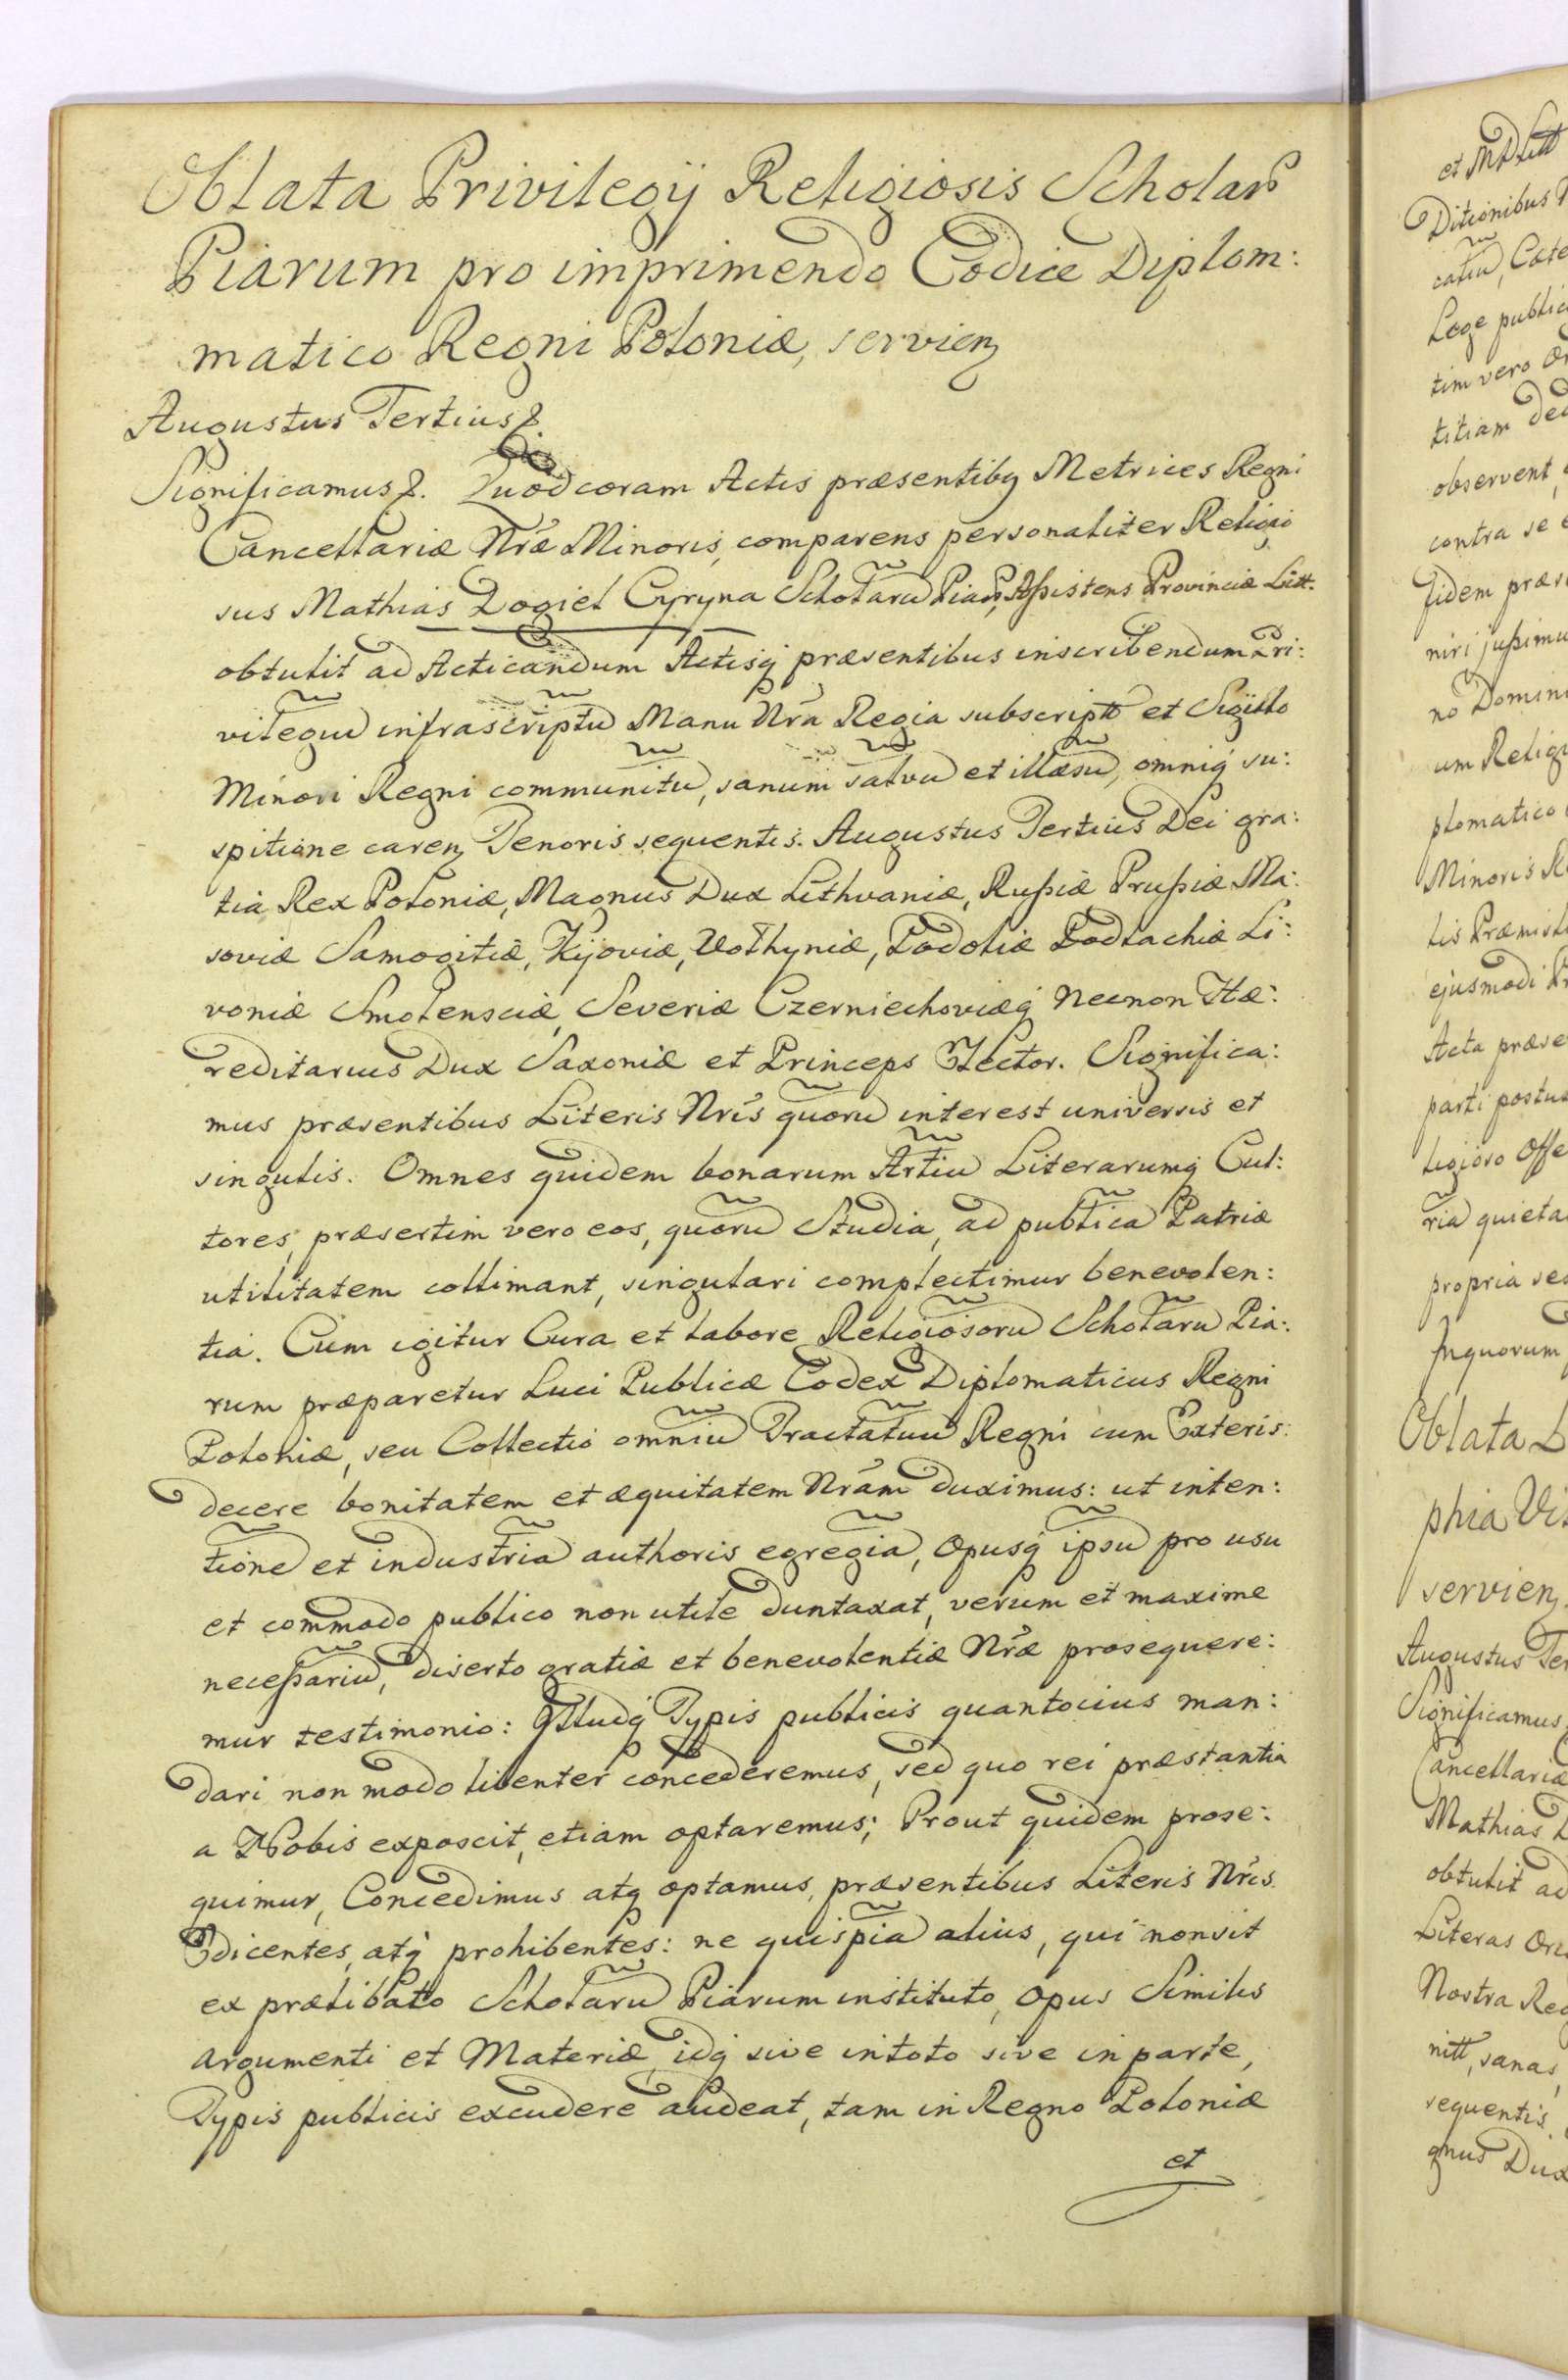 Oblata Privilegij Religiosis Scholar
Piarum pro imprimendo Codice Diplom:
matico Regni Poloniæ, servien
Augustus Tertius
Significamus. Quod coram Actis præsentibq Metrices Regni
Cancellariæ Nræ Minoris, comparens personaliter Religio
sus Mathias Dogiel Cyryna Scholarũ Piar, Assistens Provinciæ Litt.
obtulit ad Acticandum Actisq præsentibus inscribendum Pri:
vilegiũ infrascriptũ Manu Nrã Regia subscriptt et Sigillo
Minori Regni communitũ, sanum salvũ et illæsũ, omniq su:
spitione caren Tenoris sequentis. Augustus Tertius Dei gra:
tia Rex Poloniæ, Magnus Dux Lithvaniæ, Russiæ Prussiæ Ma:
soviæ Samogitiæ, Kijoviæ, Volhyniæ, Podoliæ Podlachiæ Li:
voniæ Smolensciæ, Severiæ Czerniechoviæq Necnon Hæ:
reditarius Dux Saxoniæ et Princeps Elector. Significa:
mus præsentibus Literis Nris quorũ interest universis et
singulis. Omnes quidem bonarum Artiũ Literarumq Cul:
tores, præsertim vero eos, quorũ Studia, ad publicã Patriæ
utilitatem collimant, singulari complectimur benevolen:
tia. Cum igitur Cura et labore Religiosorũ Scholarũ Pia:
rum præparetur Luci Publicæ Codex Diplomaticus Regni
Poloniæ, seu Collectio omniũ Tractatuũ Regni cum Exteris:
decere bonitatem et æquitatem Nram duximus: ut inten:
tionẽ et industriã authoris egregiã, Opusq ipsũ pro usu
et commodo publico non utile duntaxat, verum et maxime
necessariũ, diserto gratiæ et benevolentiæ Nræ prosequere:
mur testimonio: Illudq Typis publicis quantocius man:
dari non modo libenter concederemus, sed quo rei præstantia
a Nobis exposcit, etiam optaremus; Prout quidem prose:
quimur, Concedimus atq optamus, præsentibus Literis Nris.
Edicentes, atq prohibentes: ne quispiã alius, qui non sit
ex prælibato Scholarũ Piarum instituto, Opus Similis
argumenti et Materiæ, idq sive in toto sive in parte,
Typis publicis excudere audeat, tam in Regno Poloniæ
et
et MD Litt
Ditionibus
catũ, Cate
Lege public
tim vero
titiam
observent,
contra se
fidem præs
niri jussimu
no Domini
um Religi
plomatico
Minoris R
tis Præmist
ejusmodi
Acta præse
parti postu
ligioso Offe
ria quieta
propria
Inquorum
Oblata
phia
servien
Augustus Ter
Significamus
Cancellariæ
Mathias
obtulit ad
Literas Ori
Nostra Reg
nitt, sanas,
sequentis
gnus Dux